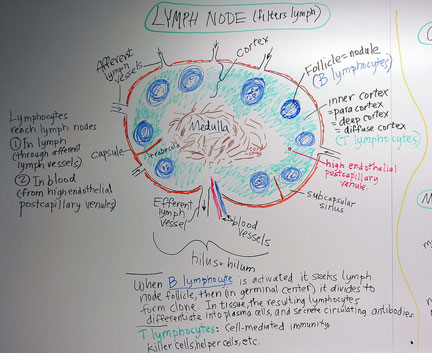 LYMPH NODE (filters lymph)
Afferent
lymph
vessels
cortex
Follicle = nodule
(B lymphocytes)
inner cortex
= para cortex
= deep cortex
= diffuse cortex
(T lymphocytes)
Lymphocytes
reach lymph nodes
① In lymph
(through afferent
lymph vessels)
② In blood
(from high endothelial
postcapillary venules)
capsule
trabecula
Medulla
cord
high endothelial
postcapillary
venule.
subcapsular
sinus
Efferent
lymph
vessel
blood
vessels
hilus = hilum
When B lymphocyte is activated it seeks lymph
node follicle, then (in germinal center) it divides to
form clone. In tissue, the resulting lymphocytes
differentiate into plasma cells, and secrete circulating antibodies.
T lymphocytes: Cell-mediated immunity
Killer cells, helper cells, etc.